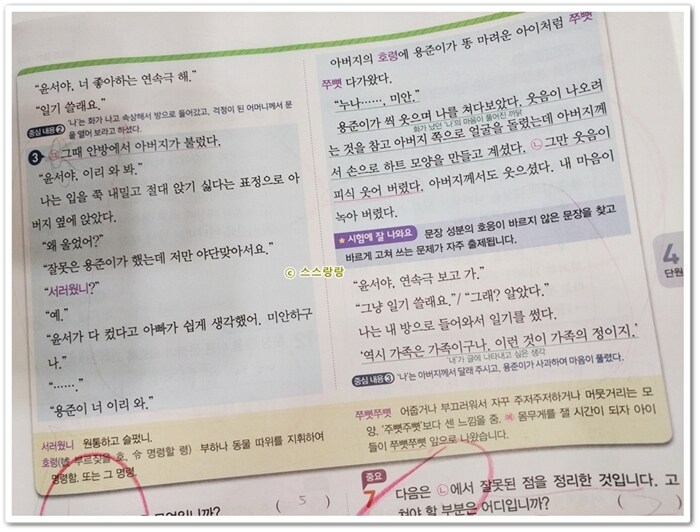 "윤서야, 너 좋아하는 연속극 해."
"일기 쓸래요."
중심 내용 2 '나'는 화가 나고 속상해서 방으로 들어갔고, 걱정이 된 어머니께서 문
을 열어 보라고 하셨다.
3 ㉠그때 안방에서 아버지가 불렀다.
"윤서야, 이리 와 봐."
나는 입을 쭉 내밀고 절대 앉기 싫다는 표정으로 아
버지 옆에 앉았다.
"왜 울었어?"
"잘못은 용준이가 했는데 저만 야단맞아서요."
"서러웠니?"
"예."
"윤서가 다 컸다고 아빠가 쉽게 생각했어. 미안하구
나."
"……."
"용준이 너 이리 와."
서러웠니 원통하고 슬펐니.
호령(號 부르짖을 호, 令 명령할 령) 부하나 동물 따위를 지휘하여
명령함. 또는 그 명령.
아버지의 호령에 용준이가 똥 마려운 아이처럼 쭈뼛
쭈뼛 다가왔다.
"누나……, 미안."
용준이가 씩 웃으며 나를 쳐다보았다. 웃음이 나오려
화가 났던 '나'의 마음이 풀어진 까닭
는 것을 참고 아버지 쪽으로 얼굴을 돌렸는데 아버지께
서 손으로 하트 모양을 만들고 계셨다. ㉡그만 웃음이
피식 웃어 버렸다. 아버지께서도 웃으셨다. 내 마음이
녹아 버렸다.
★ 시험에 잘 나와요 문장 성분의 호응이 바르지 않은 문장을 찾고
바르게 고쳐 쓰는 문제가 자주 출제됩니다.
"윤서야, 연속극 보고 가."
"그냥 일기 쓸래요." / "그래? 알았다."
나는 내 방으로 들어와서 일기를 썼다.
'역시 가족은 가족이구나. 이런 것이 가족의 정이지.'
'내'가 글에 나타내고 싶은 생각
중심 내용 3 '나'는 아버지께서 달래 주시고, 용준이가 사과하여 마음이 풀렸다.
쭈뼛쭈뼛 어줍거나 부끄러워서 자꾸 주저주저하거나 머뭇거리는 모
양. '주뼛주뼛'보다 센 느낌을 줌. 예 몸무게를 잴 시간이 되자 아이
들이 쭈뼛쭈뼛 앞으로 나왔습니다.
4
단원
ⓒ 스스랑랑
( 5 )
중요
7 다음은 ㉡에서 잘못된 점을 정리한 것입니다. 고
쳐야 할 부분은 어디입니까? (